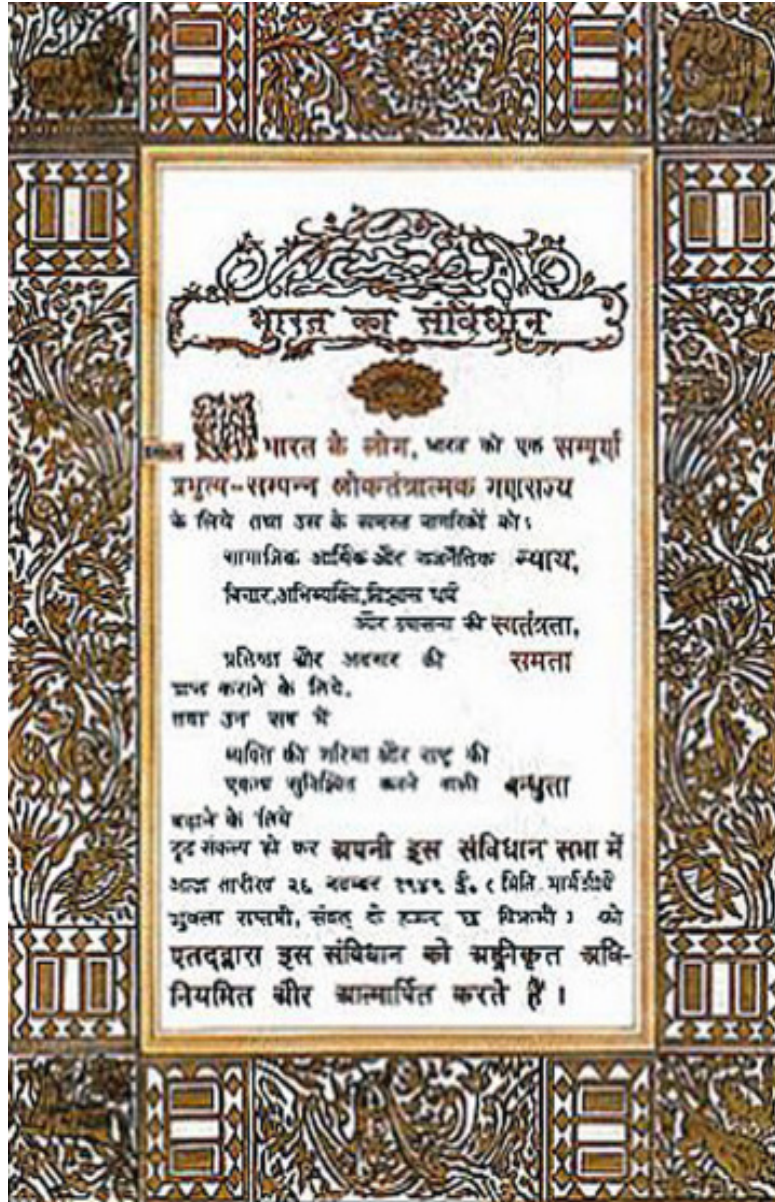 भारत का संविधान
हम भारत के लोग, भारत को एक सम्पूर्ण
प्रभुत्व-सम्पन्न लोकतंत्रात्मक गणराज्य
के लिये तथा उस के समस्त नागरिकों को:
सामाजिक आर्थिक और राजनैतिक न्याय,
विचार,अभिव्यक्ति,विश्वास धर्म
और उपासना की स्वतंत्रता,
प्रतिष्ठा और अवसर की समता
प्राप्त कराने के लिये,
तथा उन सब में
व्यक्ति की गरिमा और राष्ट्र की
एकता सुनिश्चित करने वाली बन्धुता
बढ़ाने के लिये
दृढ संकल्प हो कर अपनी इस संविधान सभा में
आज तारीख २६ नवम्बर १९४९ ई. ( मिति मार्गशीर्ष
शुक्ला सप्तमी, संवत् दो हजार छः विक्रमी ) को
एतद्द्वारा इस संविधान को अङ्गीकृत अधि-
नियमित और आत्मार्पित करते हैं ।